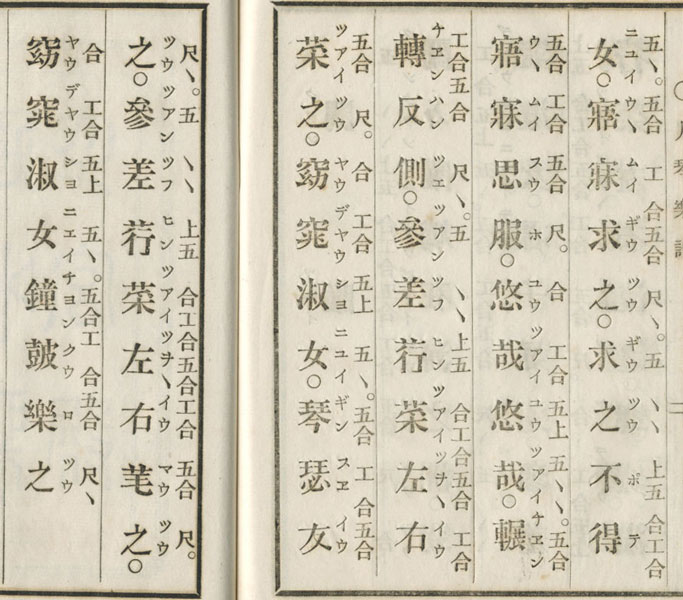 女。寤寐求之。求之不得
ニユイウヽ ムイ ギウ ツウ ギウ ツウ ボ テ
五ヽ。五合 工 合五合 尺ヽ。五 ヽヽ 上五 合工合
寤寐思服。悠哉悠哉。輾
ウヽ ムイ スウ ホ ユウ ツアイ ユウ ツアイ チヱン
五合 工合 五合 尺。合 工合 五上 五ヽヽ。五合
轉反側。參差荇菜左右
チヱン ハン ツエ ツアン ツフ ヒン ツアイ ツヲヽ イウ
工合 五合 尺ヽ。五 ヽヽ 上五 合工合五合 工合
菜之。窈窕淑女。琴瑟友
ツアイ ツウ ヤウ デヤウ シヨ ニユイ ギン スヱ イウ
五合 尺。合 工合 五上 五ヽ。五合 工 合五合
之。參差荇菜左右芼之。
ツウ ツアン ツフ ヒン ツアイ ツヲヽ イウ マウ ツウ
尺ヽ。五 ヽヽ 上五 合工合五合工合 五合 尺。
窈窕淑女鐘皷樂之
ヤウ デヤウ シヨ ニユイ チヨン クウ ロ ツウ
合 工合 五上 五ヽ。五合工 合五合 尺ヽ